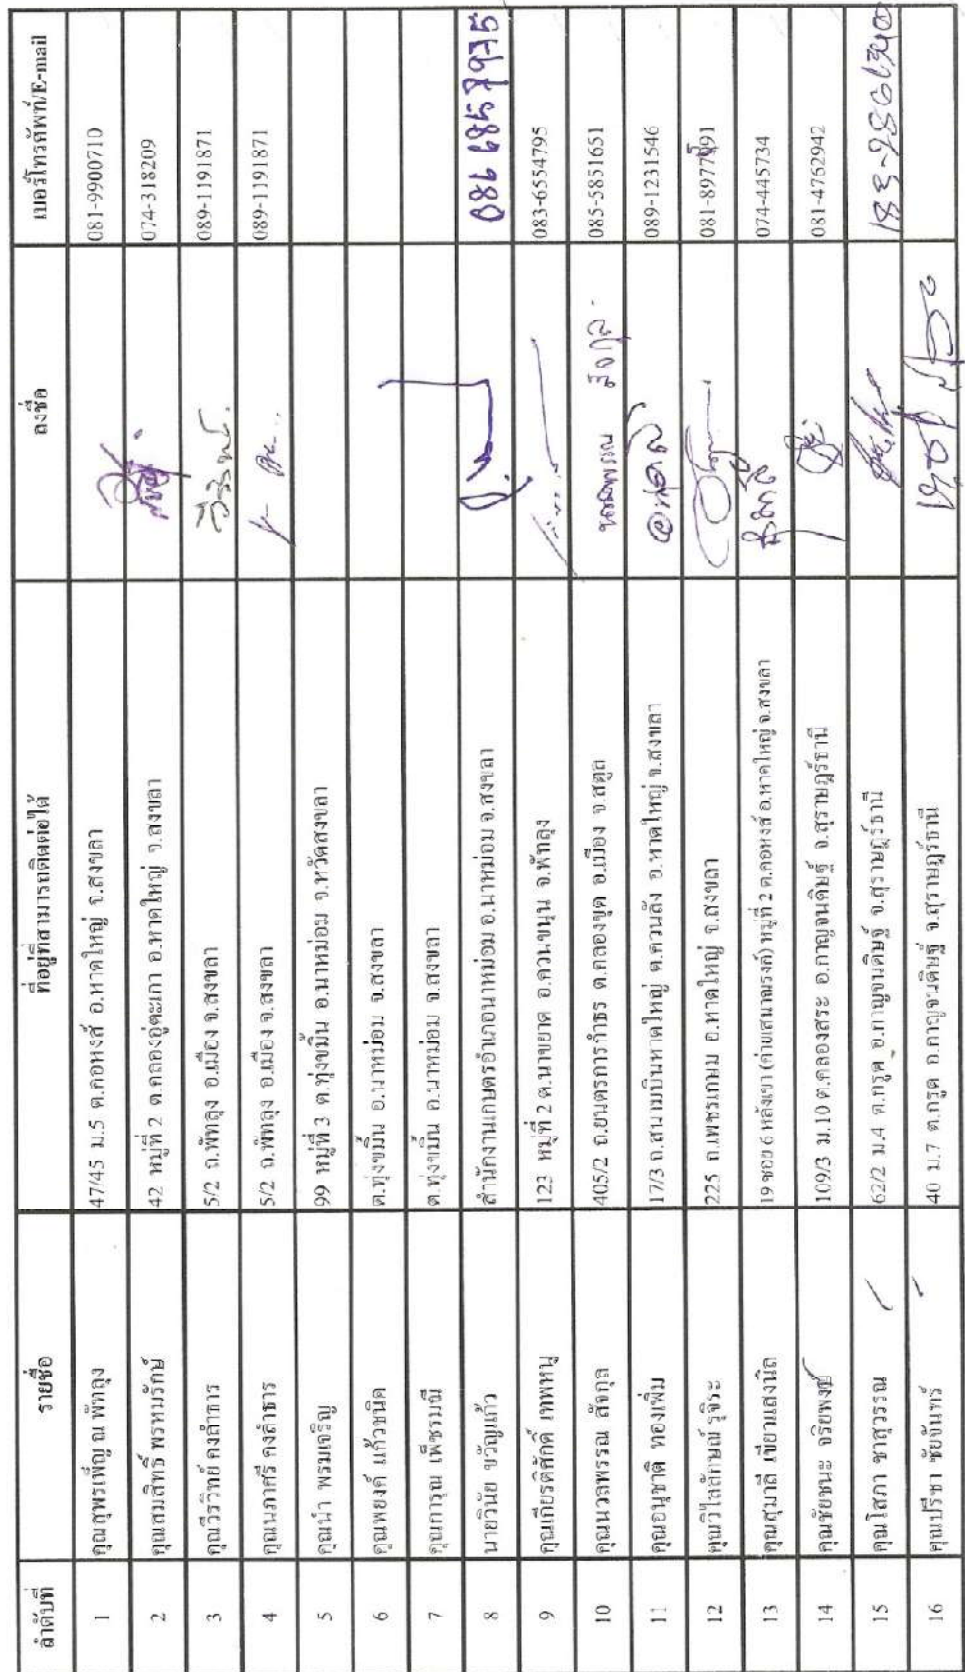 ลำดับที่ รายชื่อ ที่อยู่ที่สามารถติดต่อได้ ลงชื่อ เบอร์โทรศัพท์/E-mail
1 คุณสุพรเพ็ญ ณ พัทลุง 47/45 ม.5 ต.คอหงส์ อ.หาดใหญ่ จ.สงขลา 081-9900710
2 คุณสมสิทธิ์ พรหมรักษ์ 42 หมู่ที่ 2 ต.คลองอู่ตะเภา อ.หาดใหญ่ จ.สงขลา 074-318209
3 คุณวีรวิทย์ คงลำธาร 5/2 ถ.พัทลุง อ.เมือง จ.สงขลา 089-1191871
4 คุณนภาศรี คงลำธาร 5/2 ถ.พัทลุง อ.เมือง จ.สงขลา 089-1191871
5 คุณนำ พรมเจริญ 99 หมู่ที่ 3 ต.ทุ่งขมิ้น อ.นาหม่อม จ.หวัดสงขลา
6 คุณพยงค์ แก้วชนิด ต.ทุ่งขมิ้น อ.นาหม่อม จ.สงขลา
7 คุณการุณ เพ็ชรมณี ต.ทุ่งขมิ้น อ.นาหม่อม จ.สงขลา
8 นายวินัย ขวัญแก้ว สำนักงานเกษตรอำเภอนาหม่อม อ.นาหม่อม จ.สงขลา 086 6858975
9 คุณเกียรติศักดิ์ เทพหนู 123 หมู่ที่ 2 ต.นาขยาด อ.ควนขนุน จ.พัทลุง 083-6554795
10 คุณนวลพรรณ สัจกุล 405/2 ถ.ยนตรการกำธร ต.คลองขุด อ.เมือง จ.สตูล นวลพรรณ สัจกุล 085-5851651
11 คุณอนุชาติ ทองเพิ่ม 17/3 ถ.สนามบินหาดใหญ่ ต.ควนลัง อ.หาดใหญ่ จ.สงขลา 089-1231546
12 คุณวิไลลักษณ์ รุจิระ 225 ถ.เพชรเกษม อ.หาดใหญ่ จ.สงขลา 081-8977691
13 คุณสุมาลี เขียวแสงนิล 19 ซอย 6 หลังเขา (ค่ายเสนาณรงค์) หมู่ที่ 2 ต.คอหงส์ อ.หาดใหญ่ จ.สงขลา 074-445734
14 คุณชัยชนะ จริยพงศ์ 109/3 ม.10 ต.คลองสระ อ.กาญจนดิษฐ์ จ.สุราษฎร์ธานี 081-4762942
15 คุณโสภา ชาสุวรรณ 62/2 ม.4 ต.กรูด อ.กาญจนดิษฐ์ จ.สุราษฎร์ธานี
16 คุณปรีชา ชัยจันทร์ 40 ม.7 ต.กรูด อ.กาญจนดิษฐ์ จ.สุราษฎร์ธานี